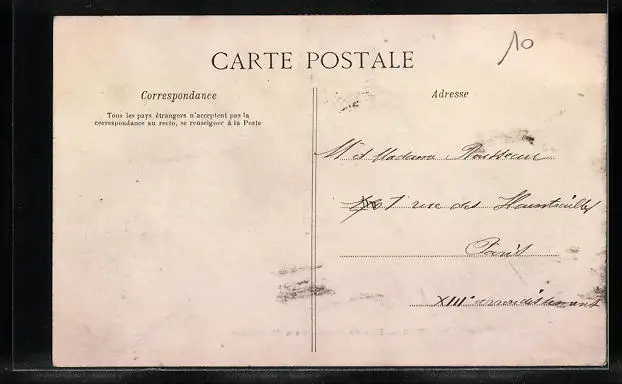 10
CARTE POSTALE
Correspondance
Tous les pays étrangers n'acceptent pas la
correspondance au recto, se renseigner à la Poste
Adresse
Mr et Madame Rousseau
7 rue des
Paris
XIIIe arrondissement